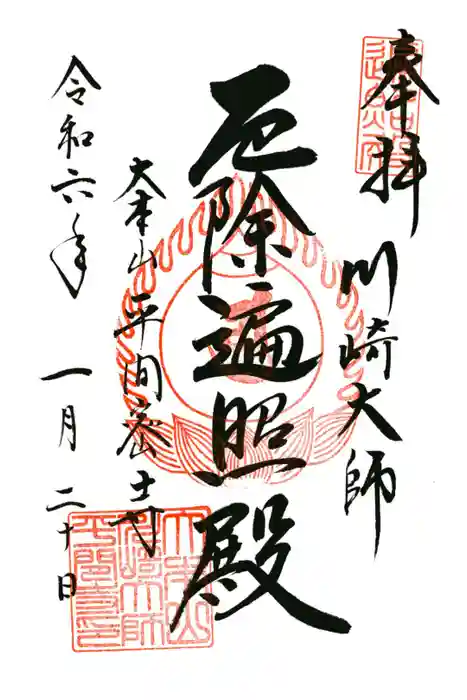 奉拝
川崎大師
厄除遍照殿
大本山
平間寺
令和六年
一月二十日